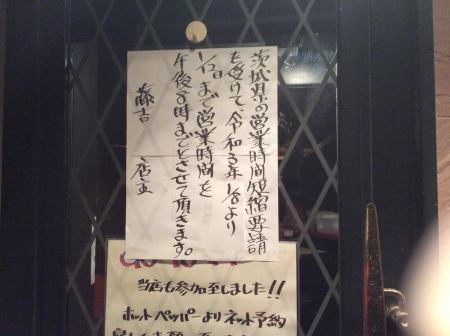 茨城県の営業時間短縮要請
を受けて、令和3年1/8より
1/12日まで営業時間を
午後8時までとさせて頂きます。
藤吉 店主
当店も参加至しました!!
ホットペッパーよりネット予約